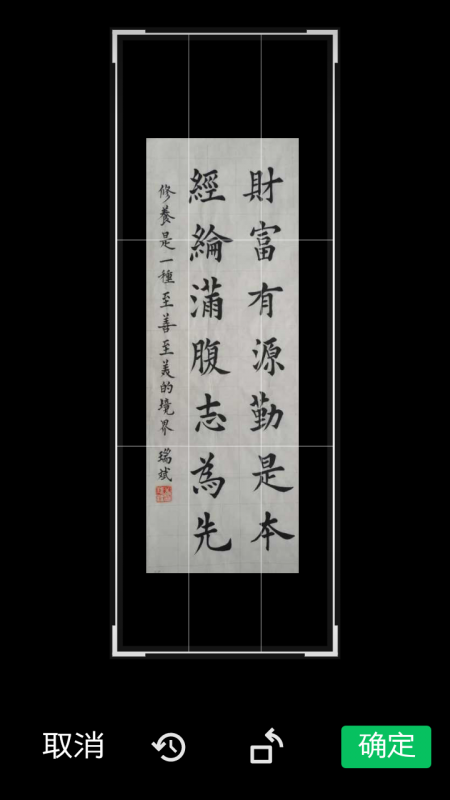 財富有源勤是本
經綸滿腹志為先
修養是一種至善至美的境界 瑞斌
取消
确定